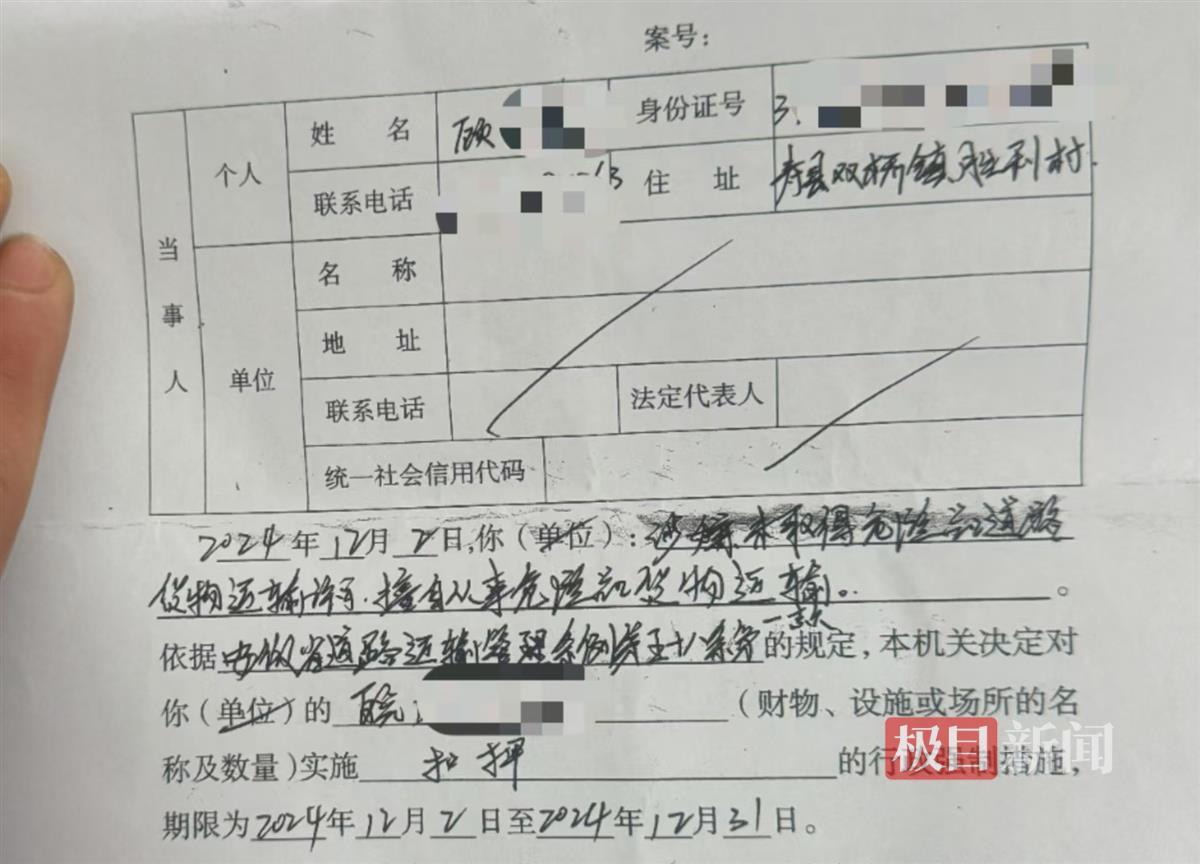 案号：
当事人
个人
姓 名 顾 身份证号 3.
联系电话 3 住 址 寿县双桥镇胜利村.
单位
名 称
地 址
联系电话 法定代表人
统一社会信用代码
2024年12月2日,你（单位）：涉嫌未取得危险品道路
货物运输许可.擅自从事危险品货物运输。。
一款
依据安徽省道路运输管理条例第五十八条第的规定，本机关决定对
你（单位）的 皖 （财物、设施或场所的名
称及数量）实施 扣押 的行政强制措施，
期限为2024年12月2日至2024年12月31日。
极目新闻